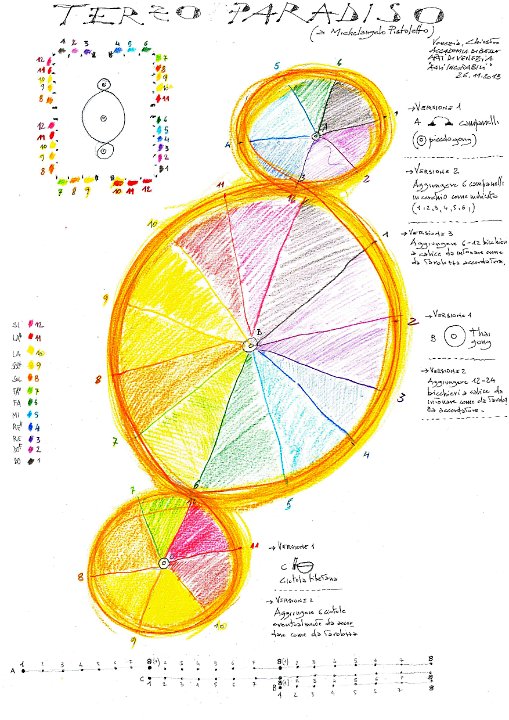 TERZO PARADISO
(→ Michelangelo Pistoletto)
Venezia, Chiostro
Accademia di Belle
Arti di Venezia
Agli Incurabili
26.11.2013
1 2 3 4 5 6
12
11
10
9
8
12
11
10
9
8
7
6
5
4
3
2
1
7 8 9 10 11 12
5 6
4 A 1
3 2
→ Versione 1
A campanelli
piccolo gong
→ Versione 2
Aggiungere 6 campanelli
in cerchio come indicato
(1, 2, 3, 4, 5, 6,)
→ Versione 3
Aggiungere 6-12 bicchieri
a calice da intonare come
da Tarobotta accordatura.
11 12
10 1
9 B 2
8 3
7 4
6 5
→ Versione 1
B Thai
gong
→ Versione 2
Aggiungere 12-24
bicchieri a calice da
intonare come da
accordatura.
SI 12
LA# 11
LA 10
SOL# 9
SOL 8
FA# 7
FA 6
MI 5
RE# 4
RE 3
DO# 2
DO 1
7 12
C 11
8
9 10
→ Versione 1
C
Ciotola tibetana
→ Versione 2
Aggiungere 6 ciotole
eventualmente da
come da
A 1 2 3 4 5 6 7 8(1) 2 3 4 5 6 7 8(1) 2 3 4 5 6 7 8
C 1 2 3 4 5 6 7 8(1) 2 3 4 5 6 7 8
B 1 2 3 4 5 6 7 8